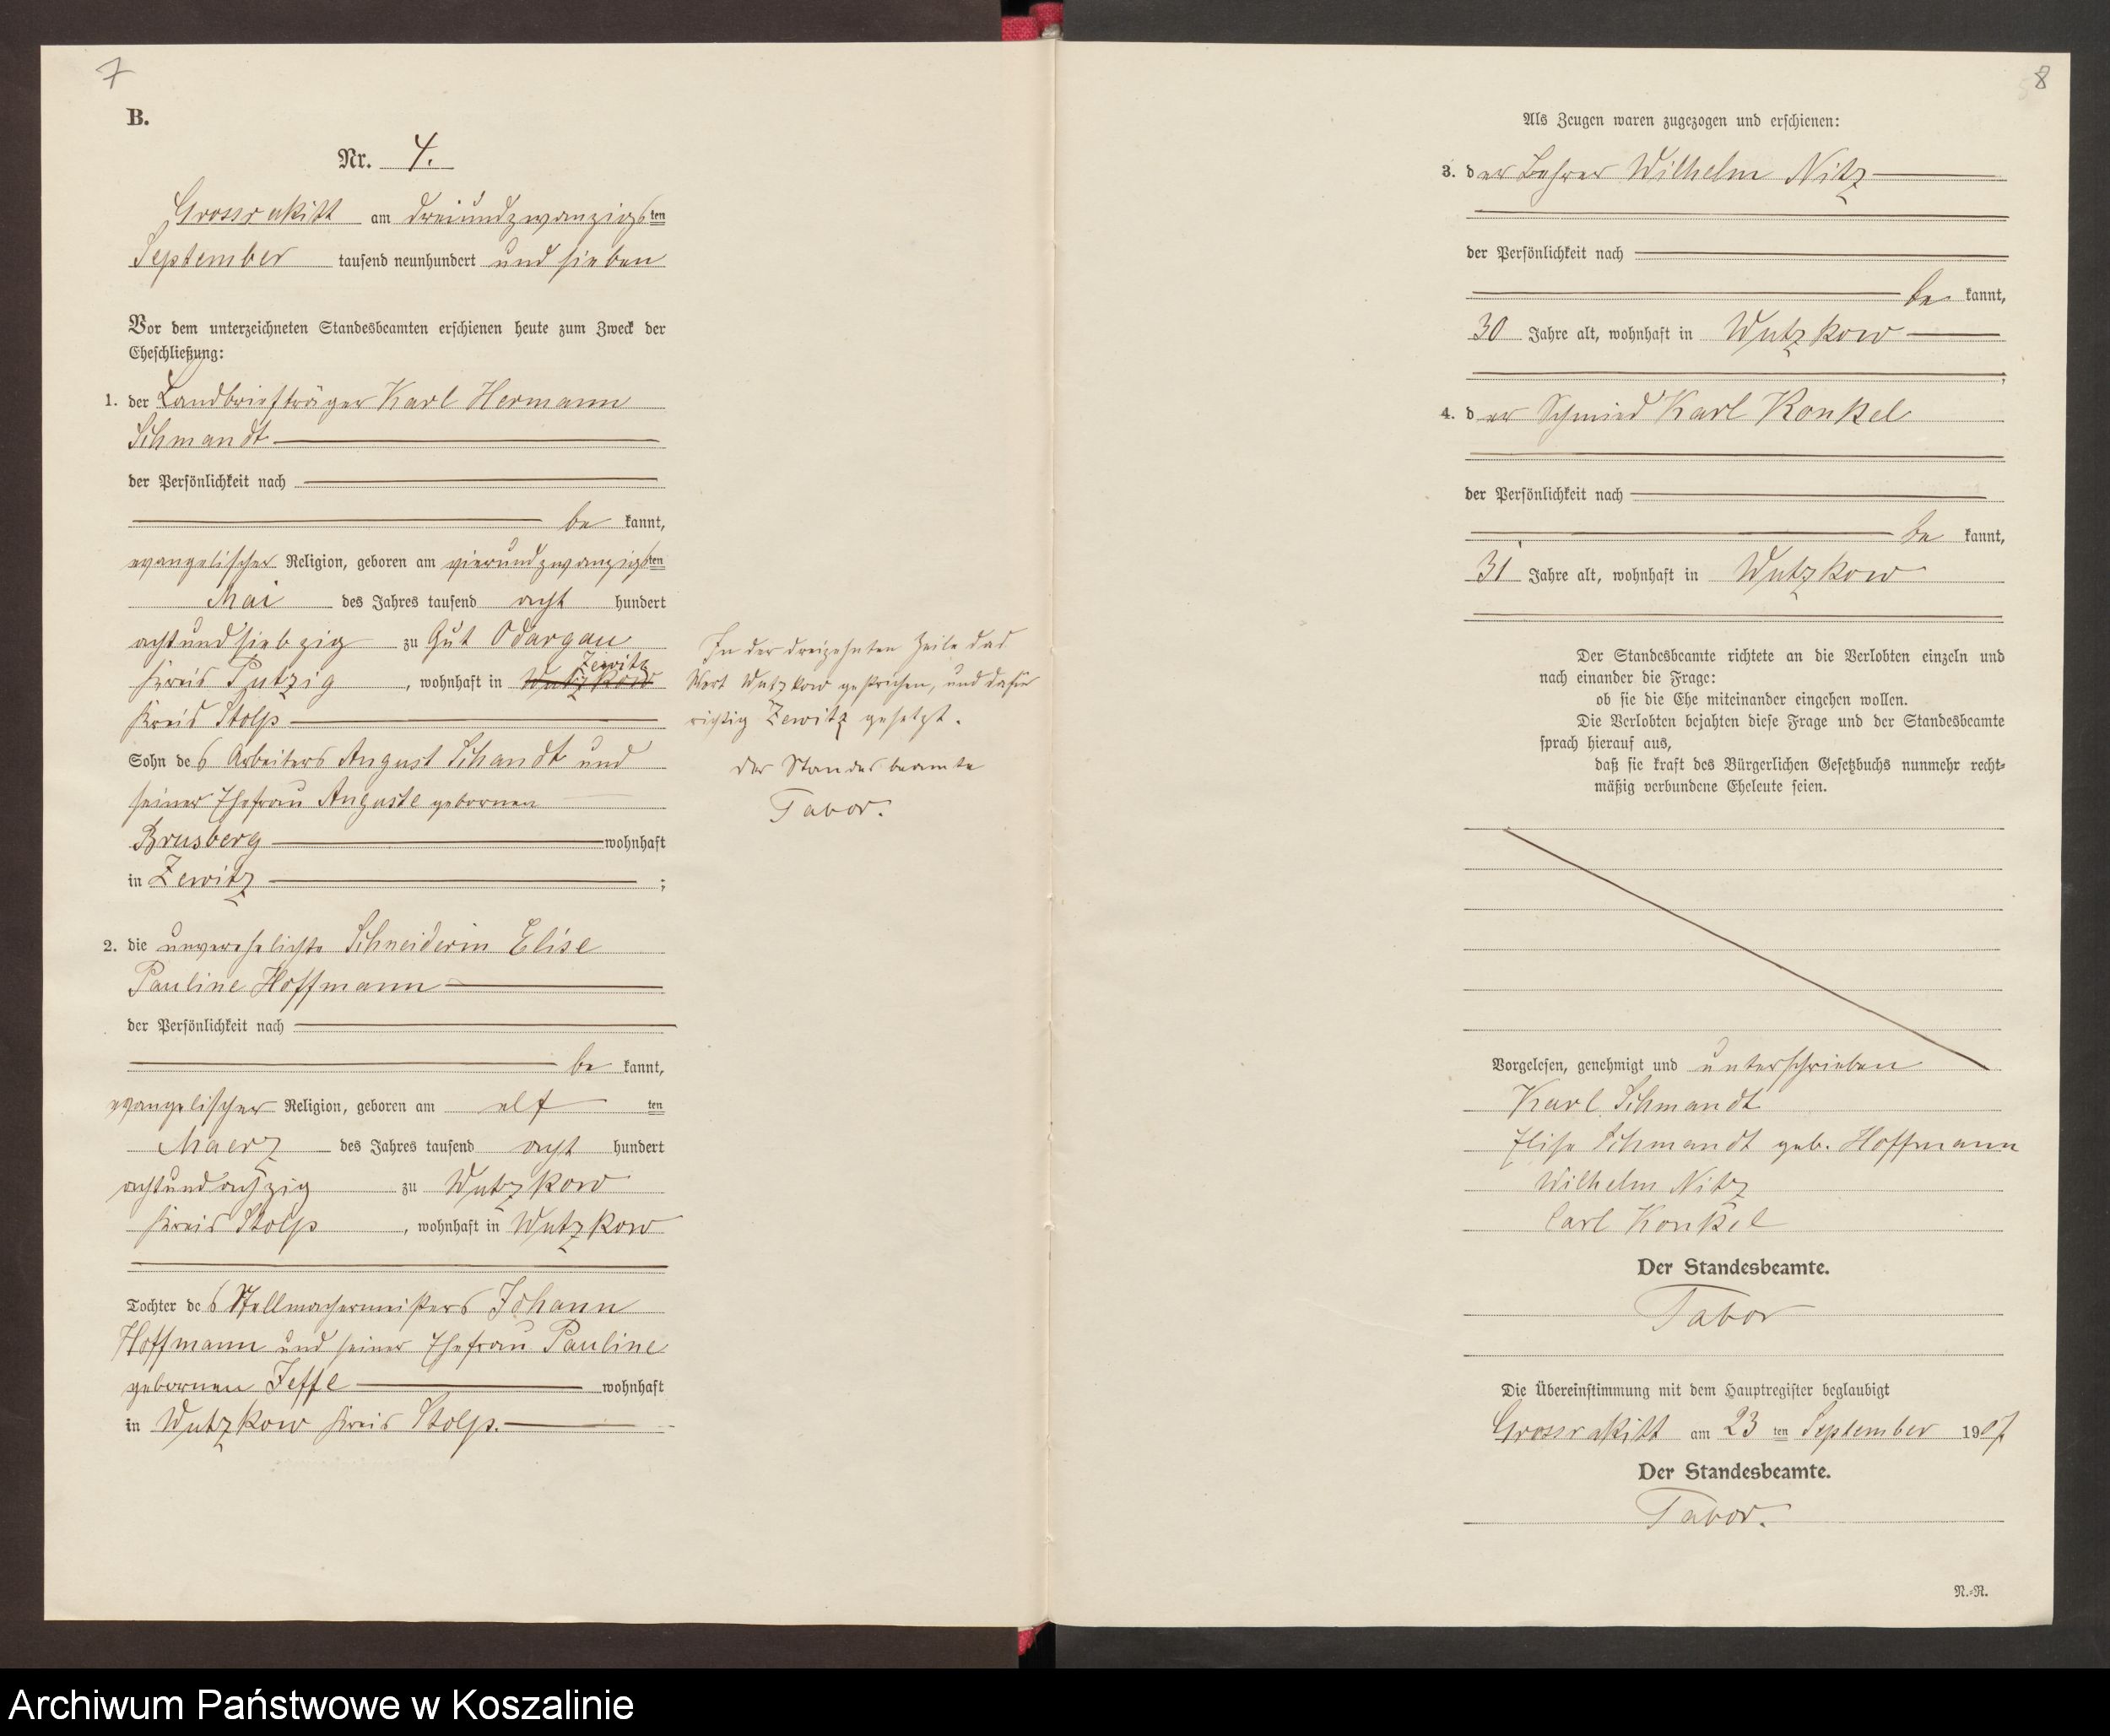 7
B.
Nr. 4.
Grossrakitt am dreiundzwanzigsten
September tausend neunhundert und sieben
Vor dem unterzeichneten Standesbeamten erschienen heute zum Zweck der
Eheschließung:
1. der Landbriefträger Karl Hermann
Schmandt
der Persönlichkeit nach
be kannt,
evangelischer Religion, geboren am vierundzwanzigsten
Mai des Jahres tausend acht hundert
achtundsiebzig zu Gut Odargau
Zewitz
Kreis Putzig, wohnhaft in Wutzkow
Kreis Stolp
Sohn des Arbeiters August Schandt und
seiner Ehefrau Auguste gebornen
Brusberg wohnhaft
in Zewitz ;
2. die unverehelichte Schneiderin Elise
Pauline Hoffmann
der Persönlichkeit nach
be kannt,
evangelischer Religion, geboren am elf ten
Maerz des Jahres tausend acht hundert
achtundachzig zu Wutzkow
Kreis Stolp, wohnhaft in Wutzkow
Tochter des Stellmachermeisters Johann
Hoffmann und seiner Ehefrau Pauline
gebornen Jeffe wohnhaft
in Wutzkow Kreis Stolp.
In der dreizehnten Zeile das
Wort Wutzkow gestrichen, und dafür
richtig Zewitz gesetzt.
Der Standesbeamte
Tabor.
8
Als Zeugen waren zugezogen und erschienen:
3. der Lehrer Wilhelm Nitz
der Persönlichkeit nach
be kannt,
30 Jahre alt, wohnhaft in Wutzkow
;
4. der Schmied Karl Konkel
der Persönlichkeit nach
be kannt,
31 Jahre alt, wohnhaft in Wutzkow
Der Standesbeamte richtete an die Verlobten einzeln und
nach einander die Frage:
ob sie die Ehe miteinander eingehen wollen.
Die Verlobten bejahten diese Frage und der Standesbeamte
sprach hierauf aus,
daß sie kraft des Bürgerlichen Gesetzbuchs nunmehr recht-
mäßig verbundene Eheleute seien.
Vorgelesen, genehmigt und unterschrieben
Karl Schmandt
Elise Schmandt geb. Hoffmann
Wilhelm Nitz
Carl Konkel
Der Standesbeamte.
Tabor
Die Übereinstimmung mit dem Hauptregister beglaubigt
Grossrakitt am 23 ten September 1907
Der Standesbeamte.
Tabor.
N.-N.
Archiwum Państwowe w Koszalinie